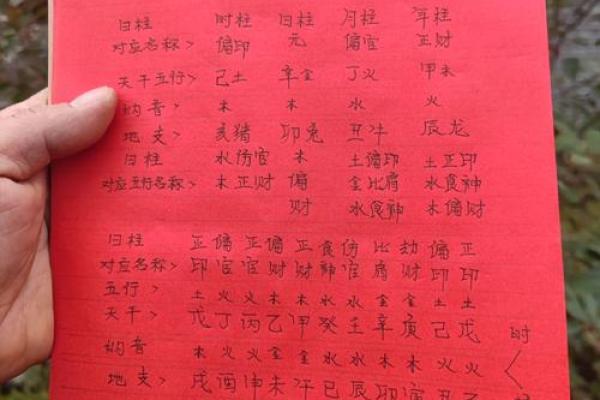 日柱 时柱 日柱 月柱 年柱
对应名称> 偏印 元 偏官 正财
天干五行> 己土 辛金 丁火 甲木
纳音> 木 木 水 火
地支> 亥猪 卯兔 丑牛 辰龙
日柱 水伤官 木 土偏印 土正印
对应五行名称> 木正财 偏 金比肩 水食神
财 水食神 木偏财
日柱 正 偏 正 偏 正 食 伤 比 劫 偏 正
对应名称> 印 官 官 财 财 神 官 肩 财 印 印
五行> 土 火 火 木 木 水 水 金 金 土 土
天干> 戊 丁 丙 乙 甲 癸 壬 辛 庚 己 戊 时
纳音 木 火 火 金 金 水 水 木 木 火 火
地支> 戌 酉 申 未 午 巳 辰 卯 寅 丑